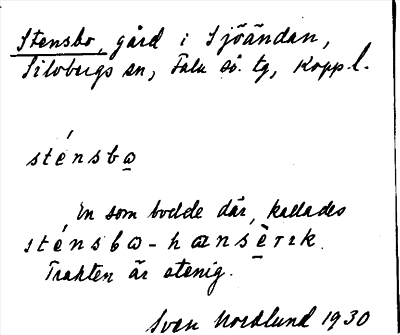 Stensbo, gård i Sjöändan,
Silvbergs sn, Falu sö. tg, Kopp.l.
sténsbɷ
En som bodde där, kallades
sténsbɷ-hansèrɪk.
Trakten är stenig.
Sven Nordlund 1930